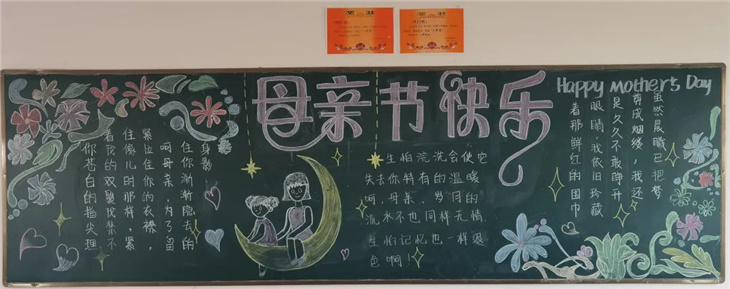 母亲节快乐
Happy Mother's Day
你苍白的指尖理
着我的双鬓我禁不
住像儿时那样,紧
紧拉住你的衣襟,
呵母亲,为了留
住你渐渐隐去的
身影
虽然晨曦已把梦
剪成烟缕,我还
是久久不敢睁开
眼睛我依旧珍藏
着那鲜红的围巾
生怕浣洗会使它
失去你特有的温暖
呵,母亲,岁月的
流水不也同样无情
生怕记忆也一样退
色啊!